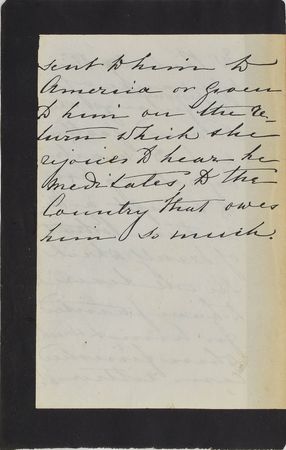 sent to him to
America or given
to him on the re-
turn which she
rejoices to hear he
meditates, to the
Country that owes
him so much.